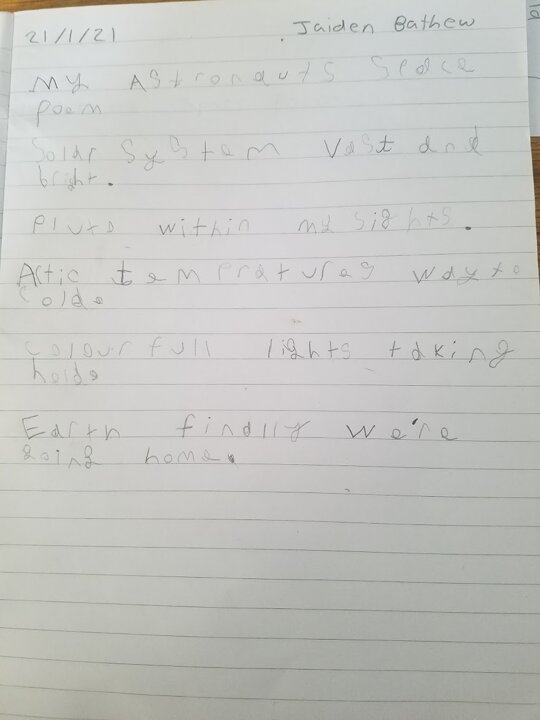 21/1/21 Jaiden Bathew
My Astronauts Space
Poem
Solar System Vast and
bright.
Pluto within my sights.
Actic tempratures way to
Cold.
Colourfull lights taking
hold.
Earth finally we're
going home.